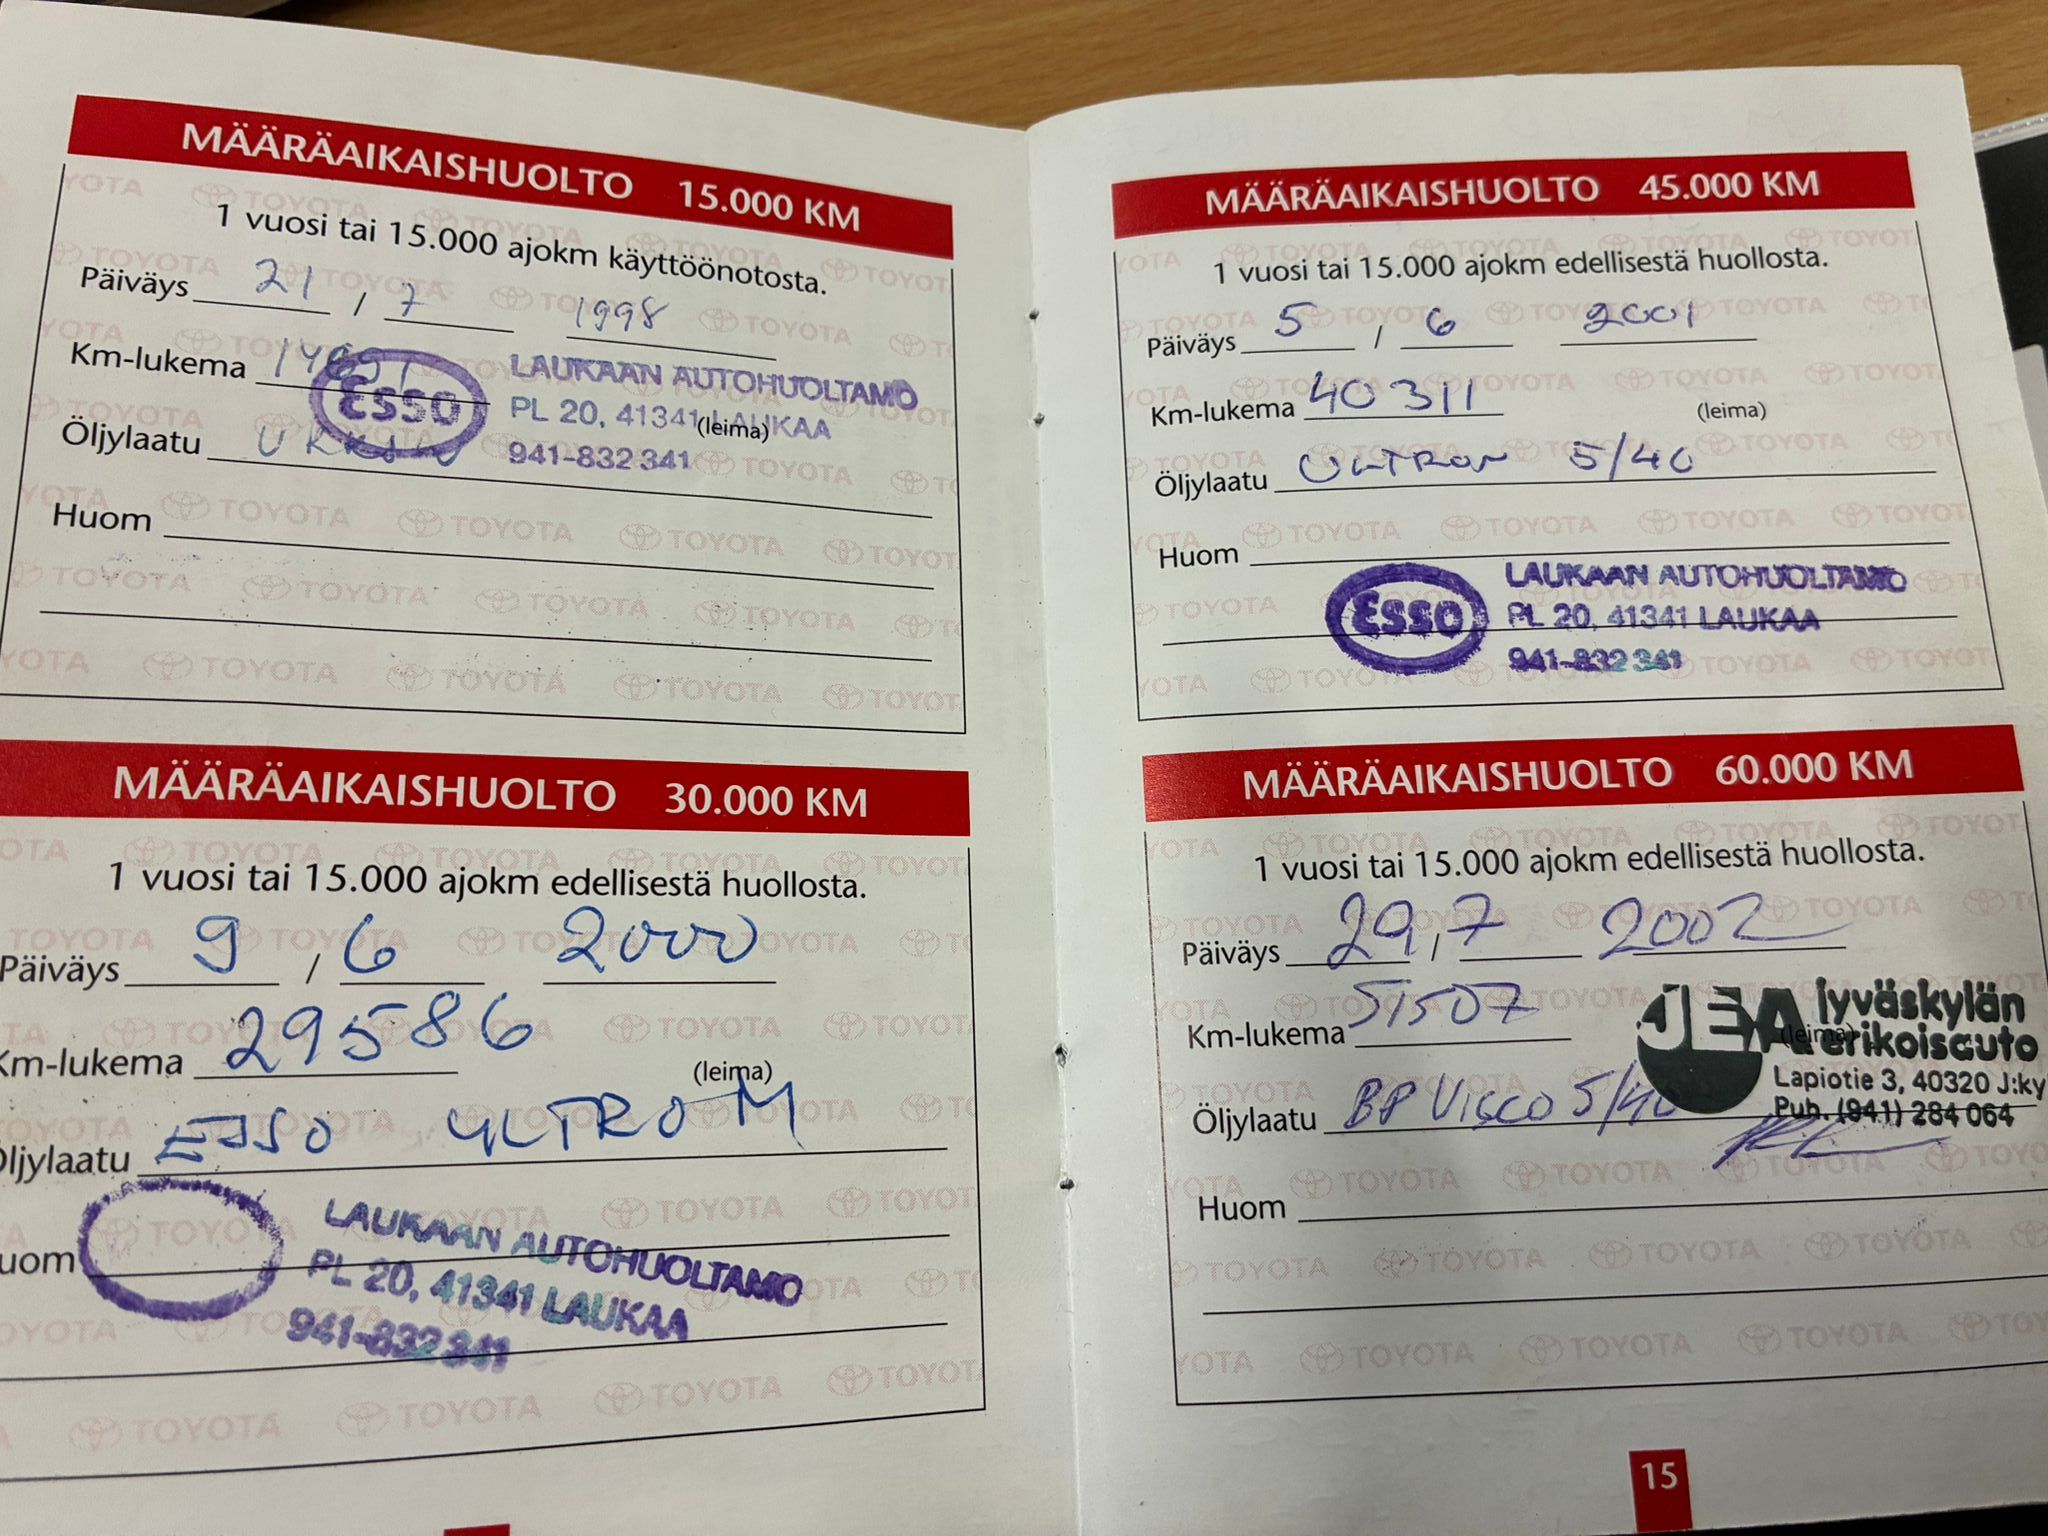 MÄÄRÄAIKAISHUOLTO 15.000 KM
1 vuosi tai 15.000 ajokm käyttöönotosta.
Päiväys 21 / 7 1998
Km-lukema
ESSO
LAUKAAN AUTOHUOLTAMO
PL 20, 41341 LAUKAA
(leima)
941-832 341
Öljylaatu
Huom
MÄÄRÄAIKAISHUOLTO 30.000 KM
1 vuosi tai 15.000 ajokm edellisestä huollosta.
Päiväys 9 / 6 2000
Km-lukema 29586
(leima)
Öljylaatu ESSO ULTROM
Huom
LAUKAAN AUTOHUOLTAMO
PL 20, 41341 LAUKAA
941-832 341
MÄÄRÄAIKAISHUOLTO 45.000 KM
1 vuosi tai 15.000 ajokm edellisestä huollosta.
Päiväys 5 / 6 2001
Km-lukema 40311
(leima)
Öljylaatu ULTRON 5/40
Huom
ESSO
LAUKAAN AUTOHUOLTAMO
PL 20, 41341 LAUKAA
941-832 341
MÄÄRÄAIKAISHUOLTO 60.000 KM
1 vuosi tai 15.000 ajokm edellisestä huollosta.
Päiväys 29 / 7 2002
Km-lukema 51507
JEA Jyväskylän
(leima)
Erikoisauto
Lapiotie 3, 40320 J:ky
Puh. (941) 284 064
Öljylaatu BP Visco 5/40
Huom
15
TOYOTA